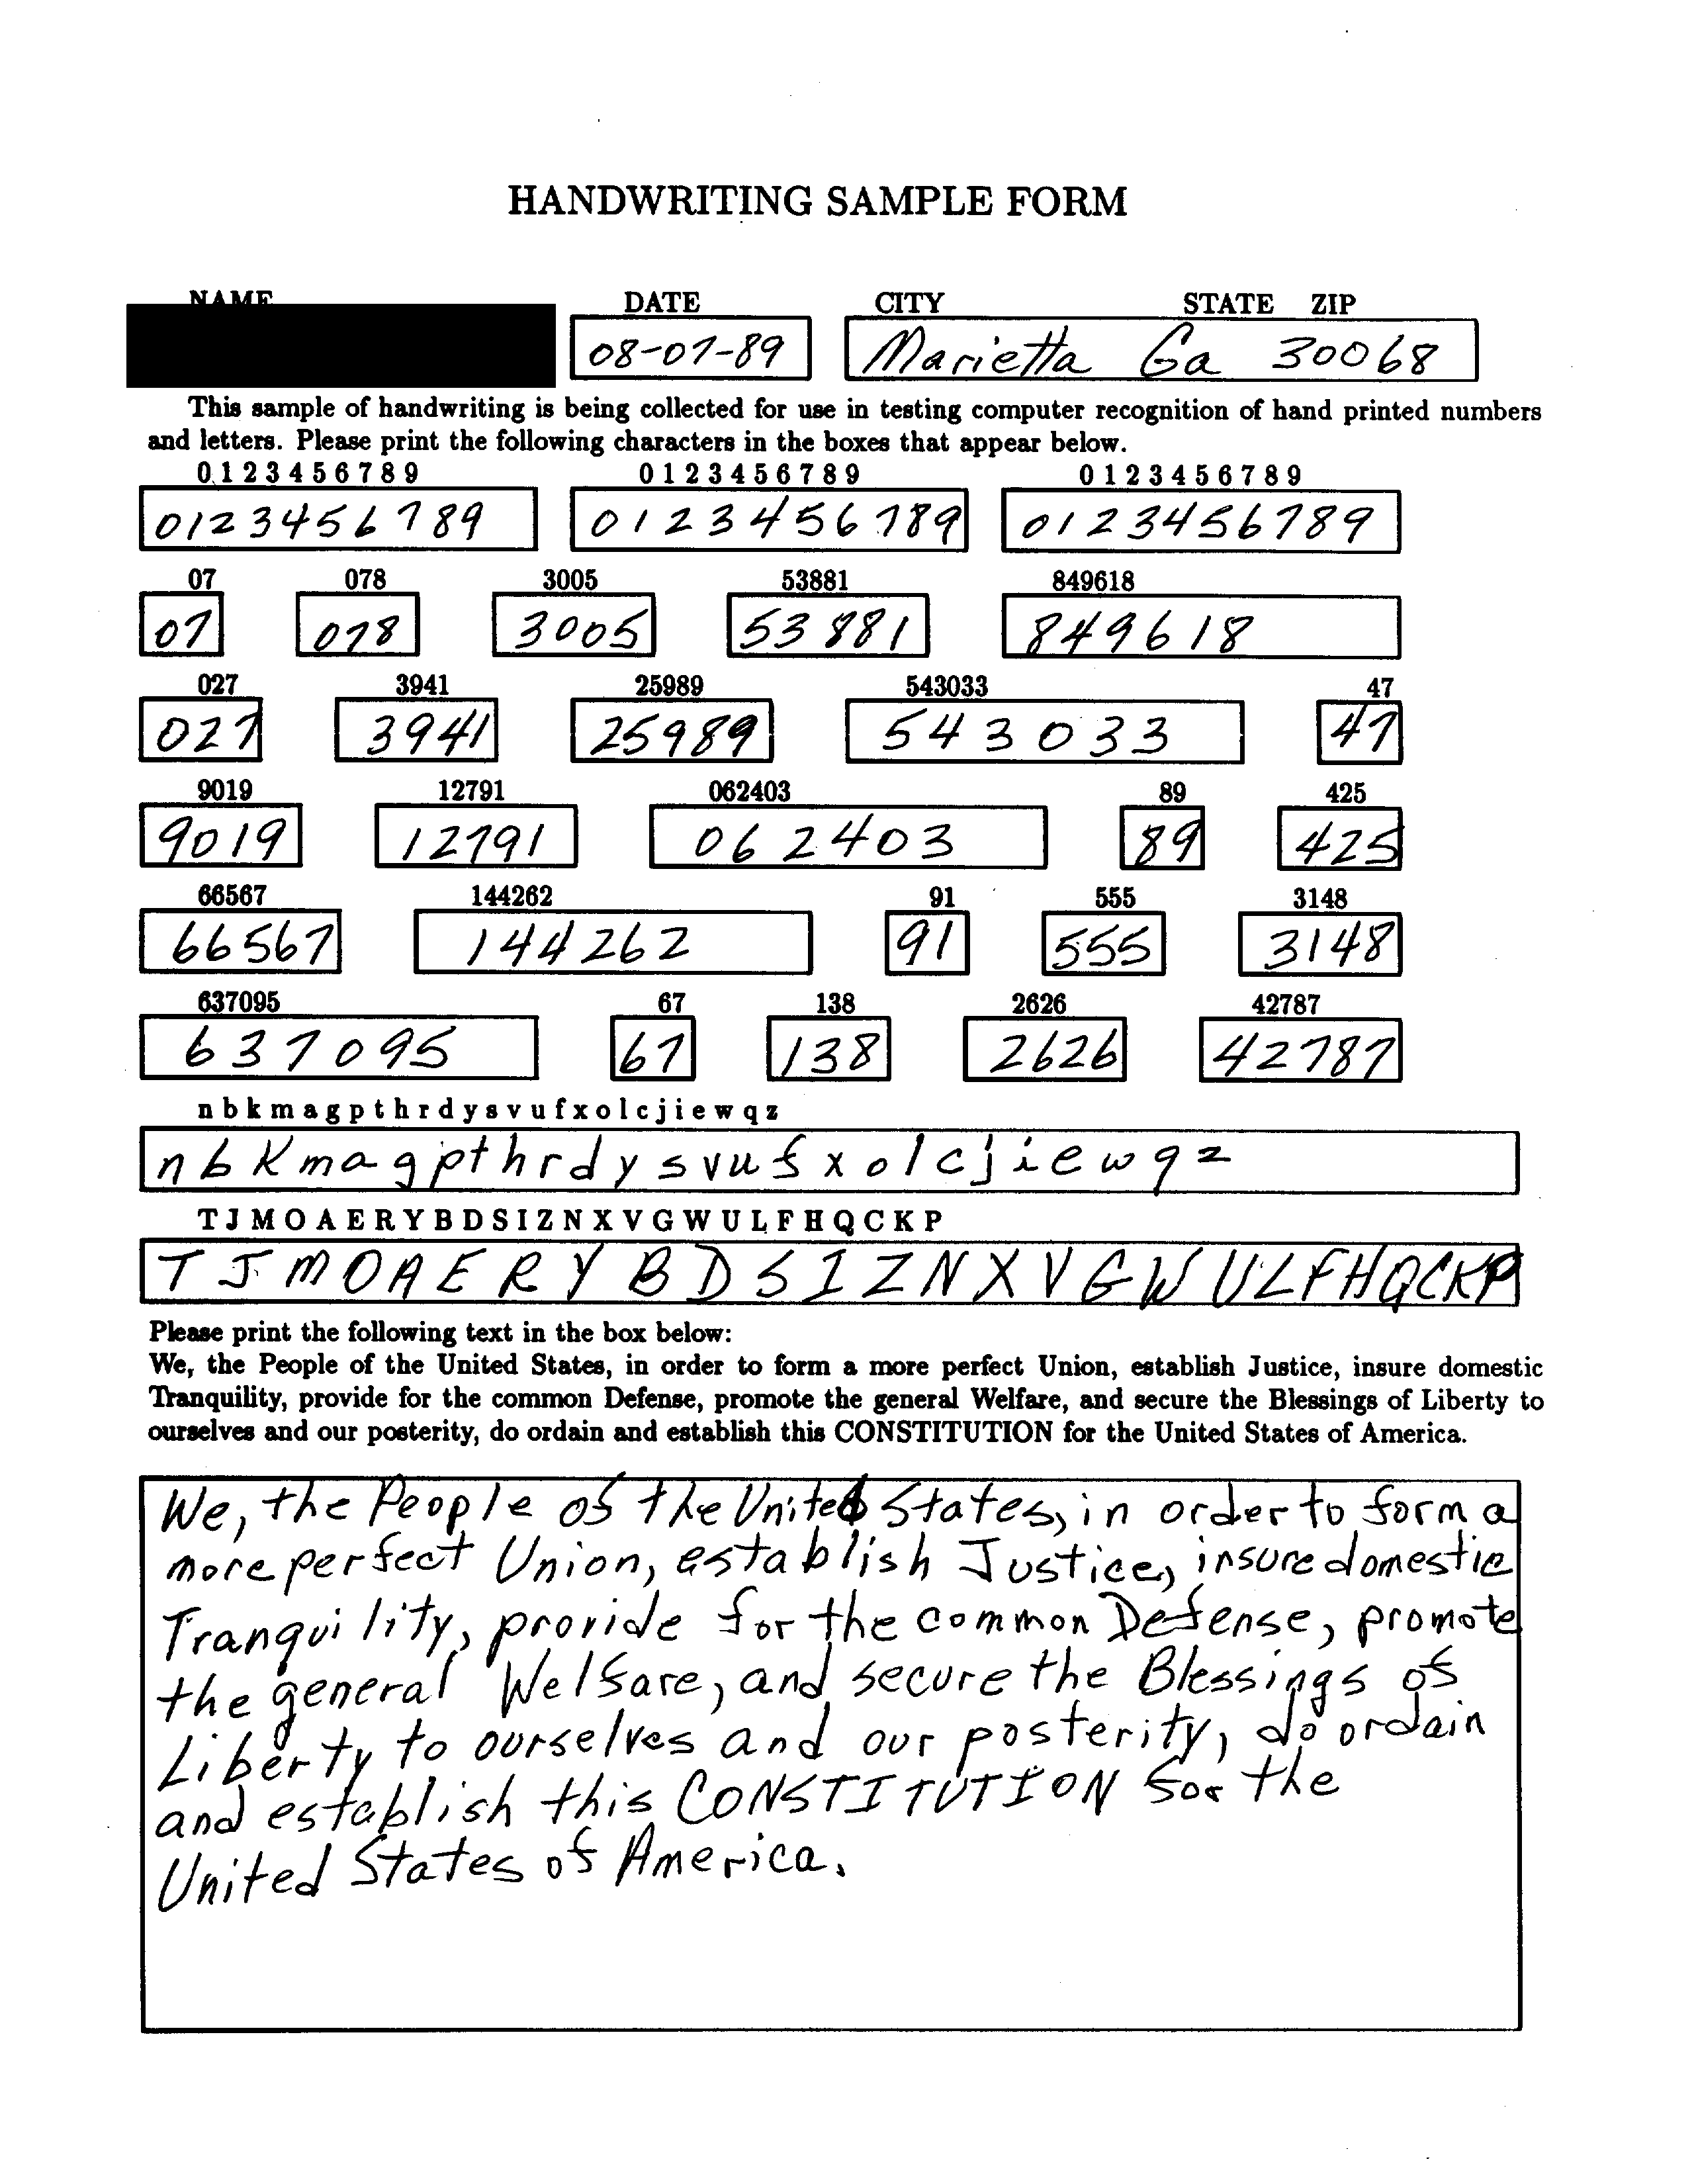 HANDWRITING SAMPLE FORM
NAME DATE CITY STATE ZIP
08-07-89 Marietta Ga 30068
This sample of handwriting is being collected for use in testing computer recognition of hand printed numbers
and letters. Please print the following characters in the boxes that appear below.
0 1 2 3 4 5 6 7 8 9 0 1 2 3 4 5 6 7 8 9 0 1 2 3 4 5 6 7 8 9
0123456789 0123456789 0123456789
07 078 3005 53881 849618
07 078 3005 53881 849618
027 3941 25989 543033 47
027 3941 25989 543033 47
9019 12791 062403 89 425
9019 12791 062403 89 425
66567 144262 91 555 3148
66567 144262 91 555 3148
637095 67 138 2626 42787
637095 67 138 2626 42787
n b k m a g p t h r d y s v u f x o l c j i e w q z
n b k m a g p t h r d y s v u f x o l c j i e w q z
T J M O A E R Y B D S I Z N X V G W U L F H Q C K P
T J M O A E R Y B D S I Z N X V G W U L F H Q C K P
Please print the following text in the box below:
We, the People of the United States, in order to form a more perfect Union, establish Justice, insure domestic
Tranquility, provide for the common Defense, promote the general Welfare, and secure the Blessings of Liberty to
ourselves and our posterity, do ordain and establish this CONSTITUTION for the United States of America.
We, the People of the United States, in order to form a
more perfect Union, establish Justice, insure domestic
Tranquility, provide for the common Defense, promote
the general Welfare, and secure the Blessings of
Liberty to ourselves and our posterity, do ordain
and establish this CONSTITUTION for the
United States of America.